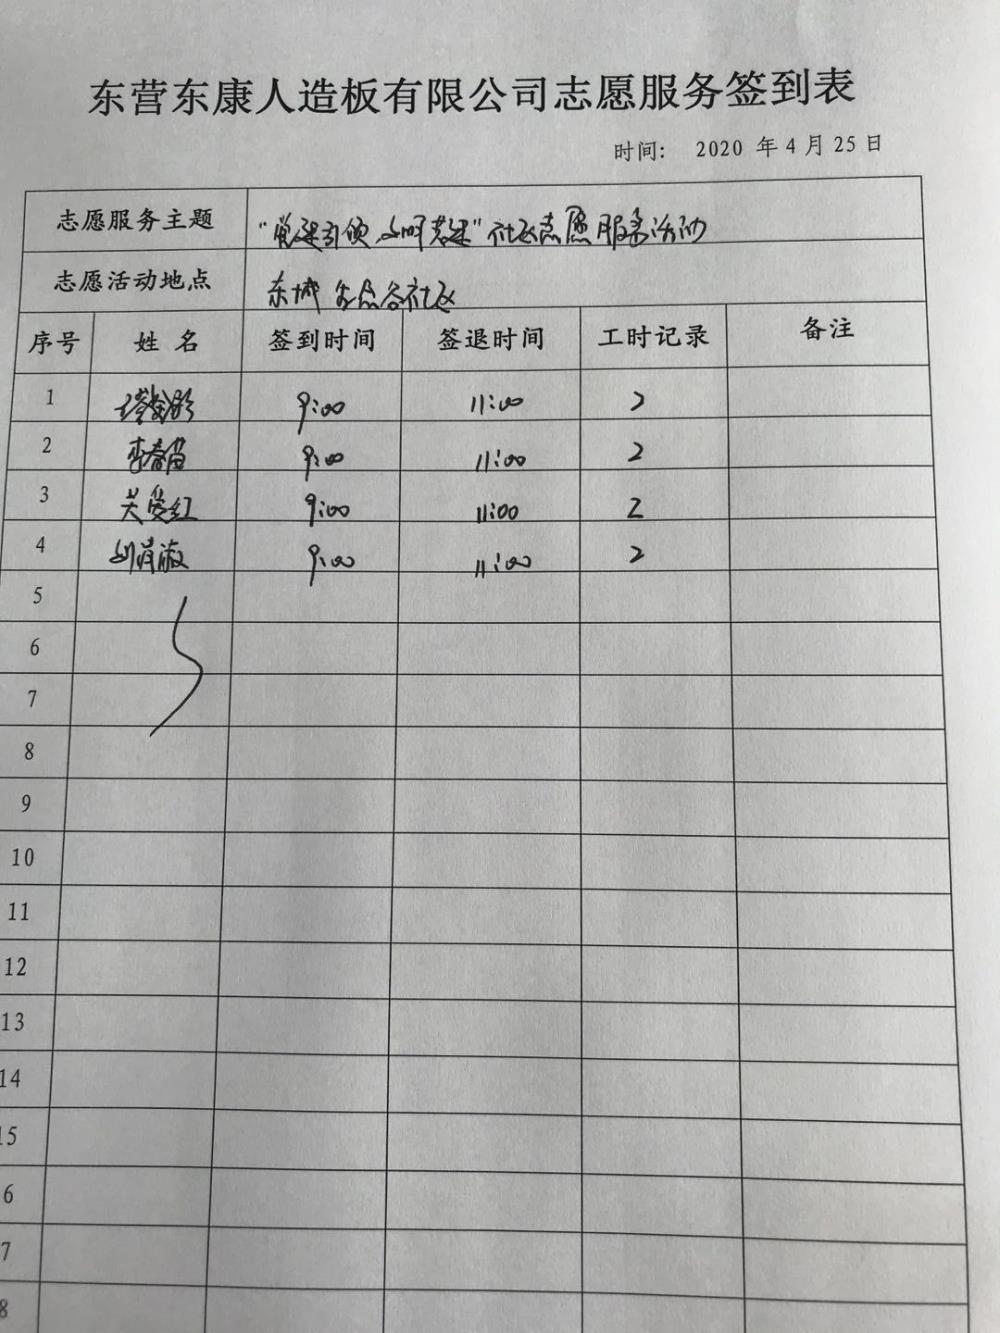 东营东康人造板有限公司志愿服务签到表
时间: 2020 年 4 月 25 日
志愿服务主题 "党建引领 文明共建"社区志愿服务活动
志愿活动地点 东城 社区
序号 姓名 签到时间 签退时间 工时记录 备注
1 9:00 11:00 2
2 李春苗 9:00 11:00 2
3 关爱红 9:00 11:00 2
4 9:00 11:00 2
5
6
7
8
9
10
11
12
13
14
15
6
7
8